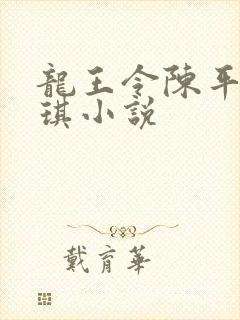 龍王令陳平
琪小說
戴育華